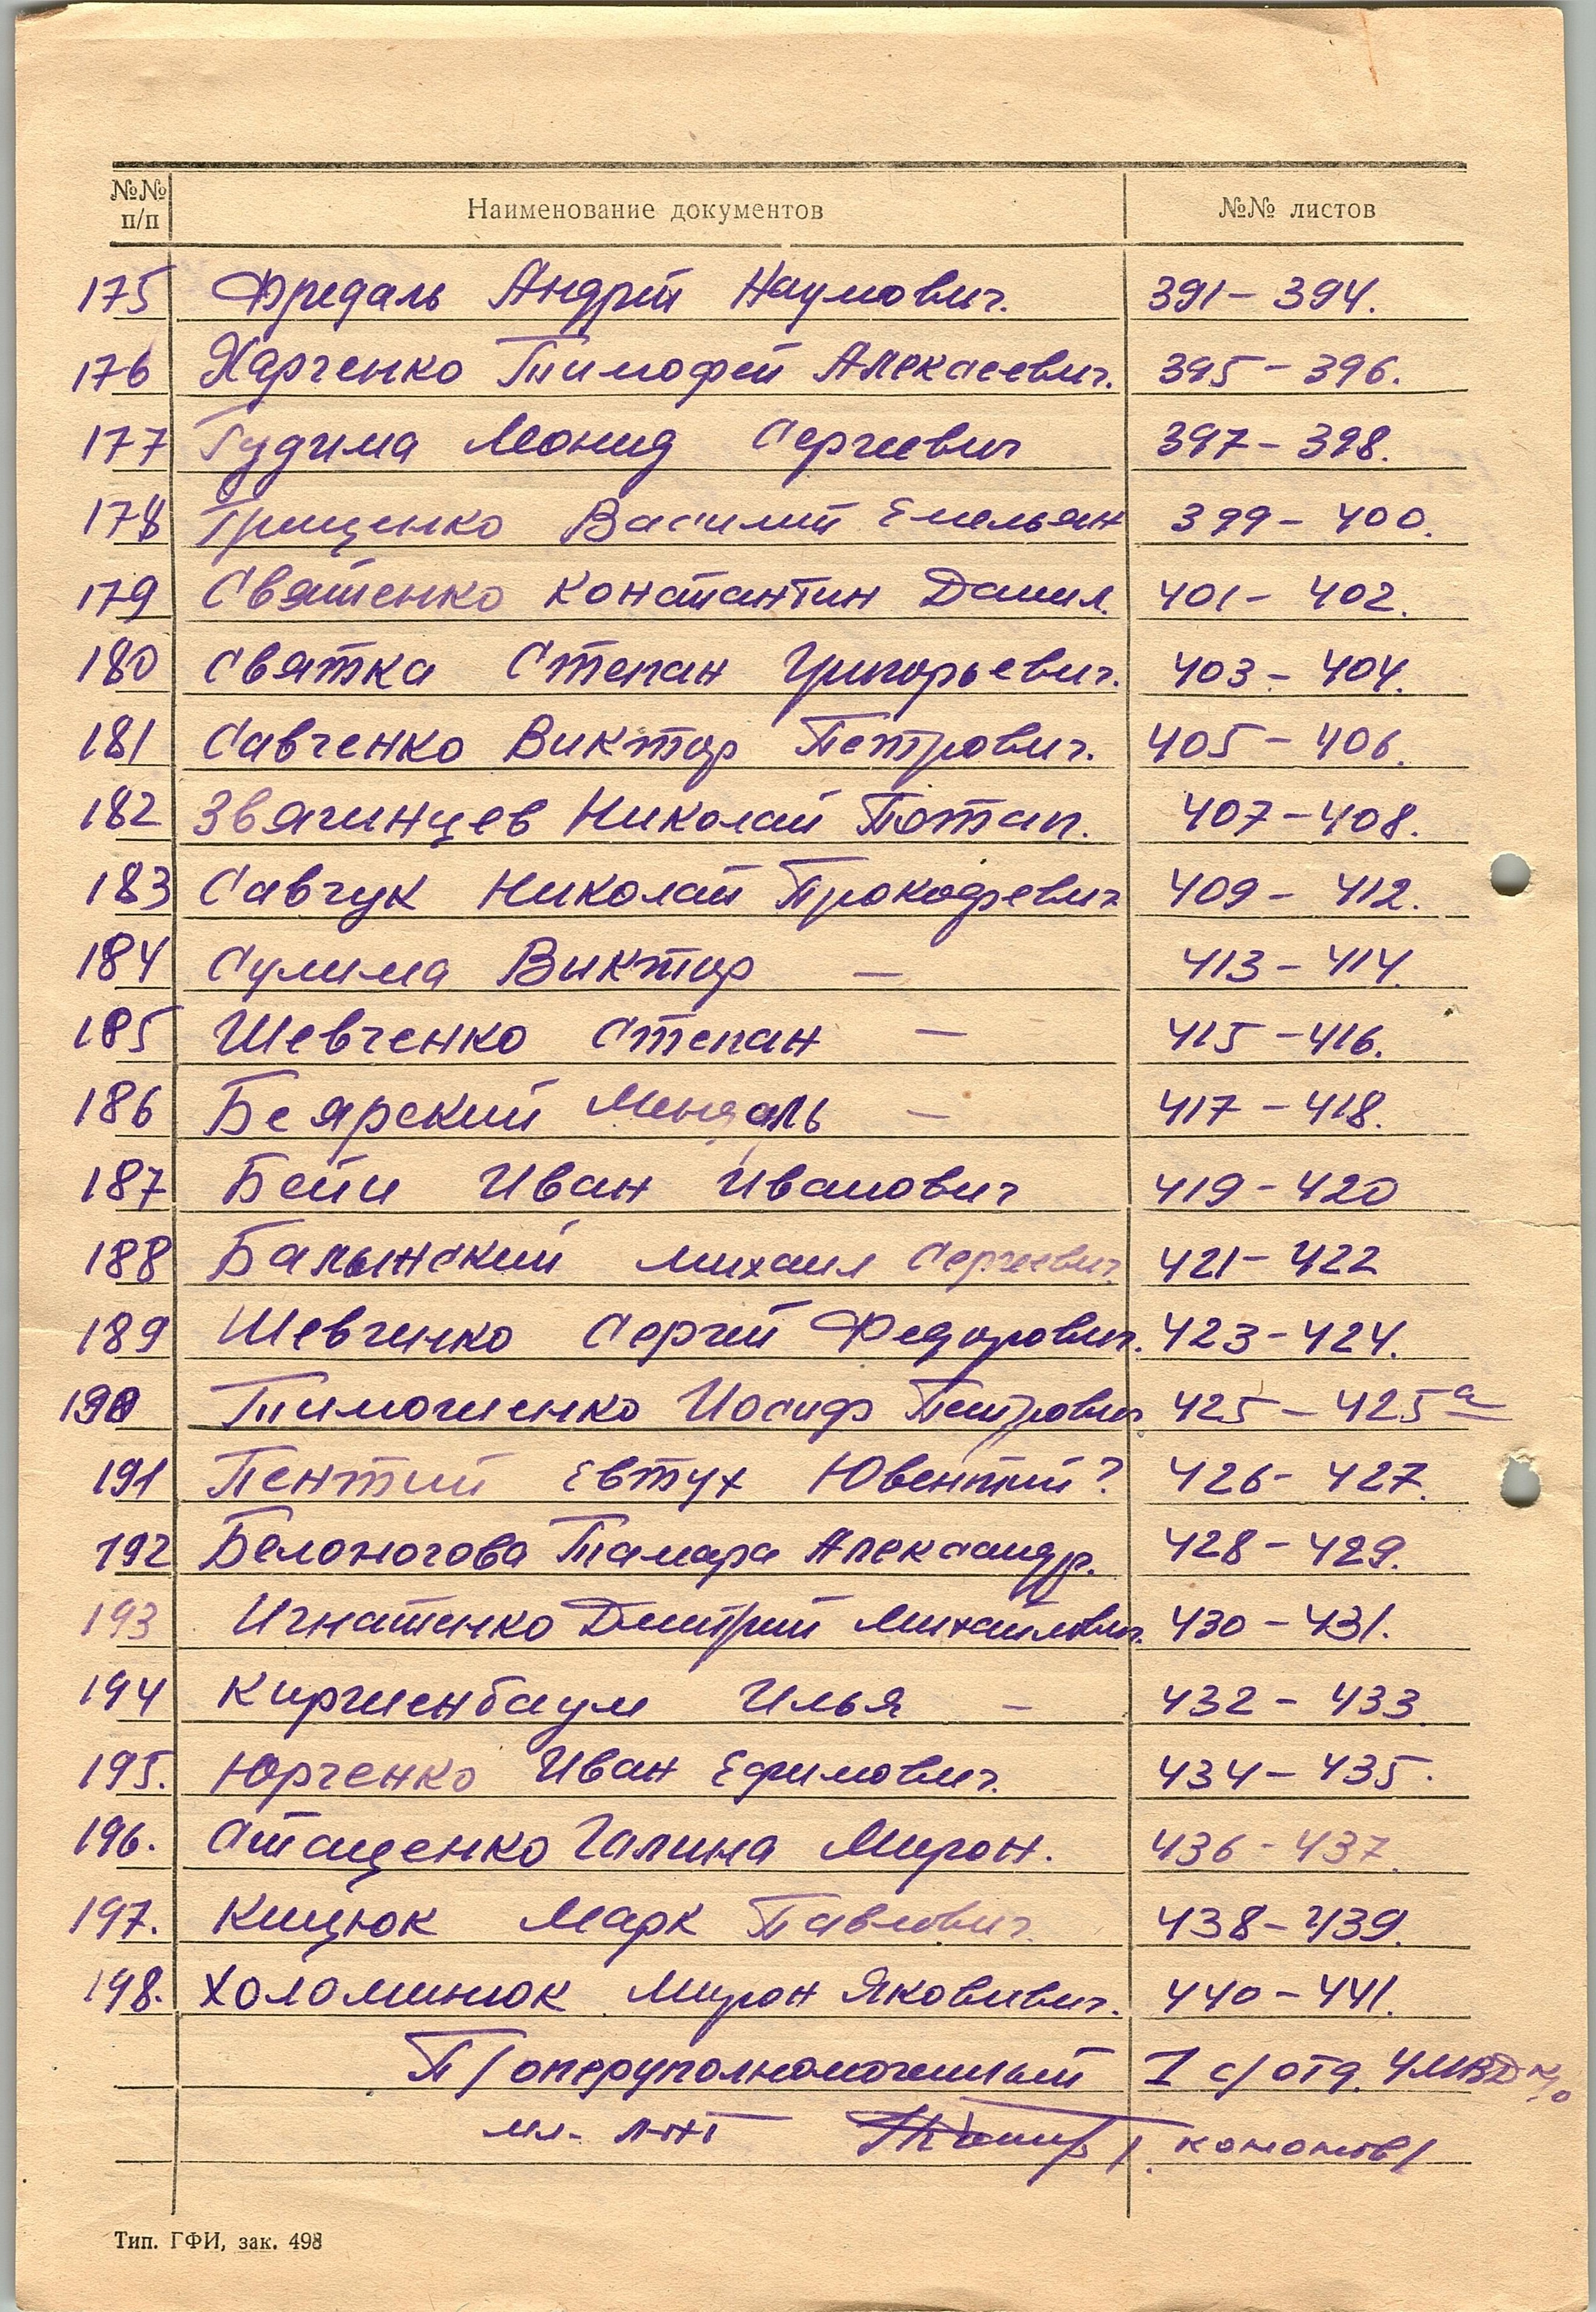 №№ п/п Наименование документов №№ листов
175 Фридаль Андрей Наумович. 391 – 394.
176 Харченко Тимофей Алексеевич. 395 – 396.
177 Гудима Леонид Сергеевич 397 – 398.
178 Грищенко Василий Емельян 399 – 400.
179 Святенко Константин Данил. 401 – 402.
180 Святка Степан Григорьевич. 403 – 404.
181 Савченко Виктор Петрович. 405 – 406.
182 Звягинцев Николай Потап. 407 – 408.
183 Савчук Николай Прокофревич 409 – 412.
184 Сулима Виктор — 413 – 414.
185 Шевченко Степан — 415 – 416.
186 Беярский Мендаль — 417 – 418.
187 Бейи Иван Иванович 419 – 420
188 Балынский Михаил Сергеевич. 421 – 422
189 Шевченко Сергей Федорович. 423 – 424.
190 Тимошенко Иосиф Петрович. 425 – 425а
191 Пентий Евтух Ювентий? 426 – 427.
192 Белоногова Тамара Александр. 428 – 429.
193 Игнатенко Дмитрий Михайлович. 430 – 431.
194 Киршенбаум Илья — 432 – 433.
195. Юрченко Иван Ефимович. 434 – 435.
196. Стаценко Галина Мирон. 436 – 437.
197. Кицюк Марк Павлович. 438 – 439.
198. Холоминюк Мирон Яковивич. 440 – 441.
П/оперуполномоченный 1 с/отд. УМВД
мл. л-нт /Кононов/
Тип. ГФИ, зак. 498